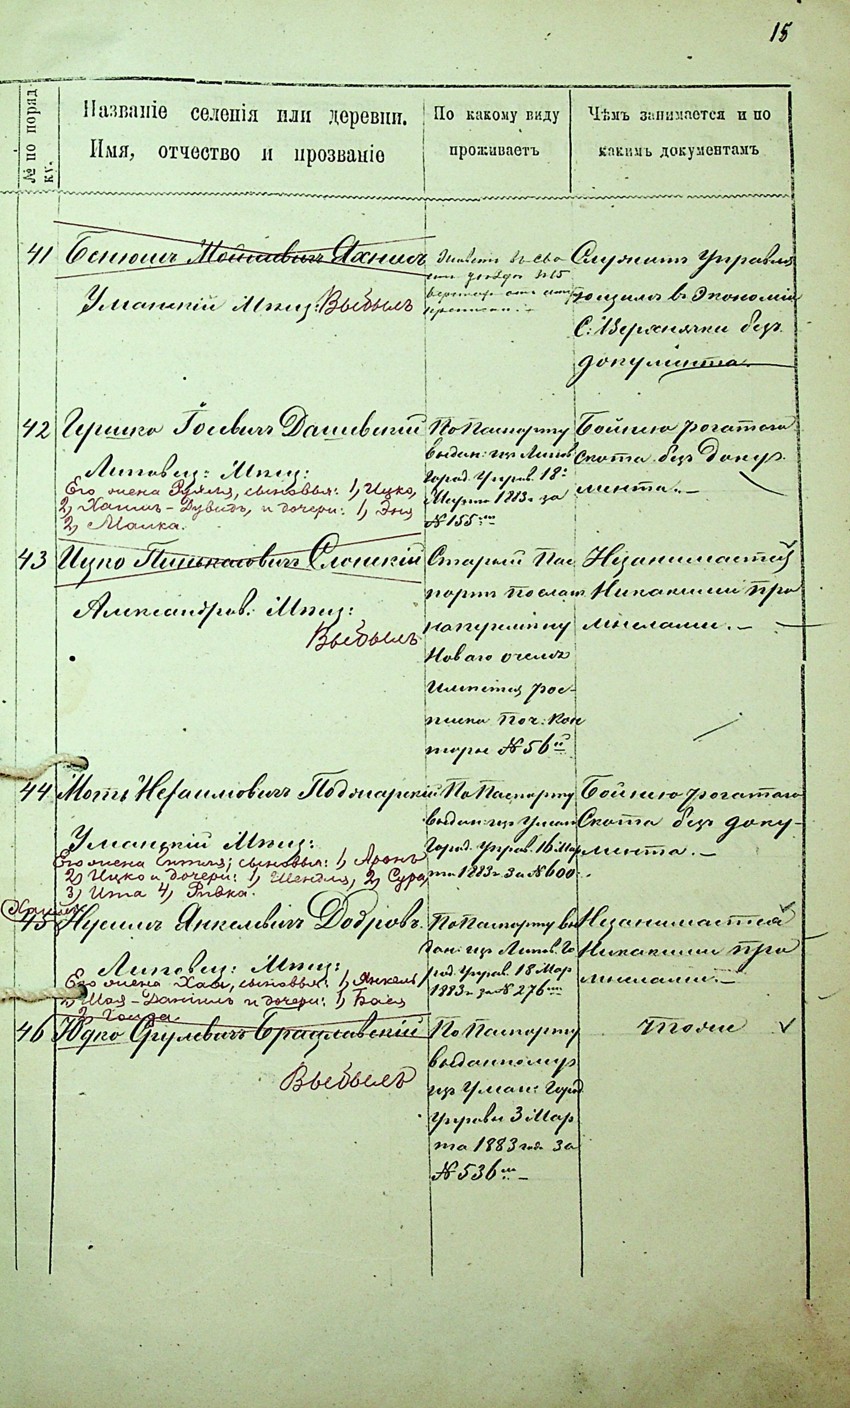 15
№ по поряд-
ку.
Названіе селенія или деревни.
Имя, отчество и прозваніе
По какому виду
проживаетъ
Чѣмъ занимается и по
какимъ документамъ
41
Бенюмъ Мошковичъ Яхнисъ
Уманскій Мѣщ: Выбылъ
Служитъ Управля
ющимъ въ Экономіи
С. Верхнячки безъ
документа
42
Гершко Іосевичъ Дашевскій
Липовец: Мѣщ:
Его жена Рухля, сыновья: 1, Ицко,
2, Хаимъ-Дувидъ, и дочери: 1,
2, Малка.
По Паспорту
выдан: изъ Липов
Город. Управ. 18
Марта 1883 г за
№ 155
Бойнею рогатаго
скота безъ доку
мента.—
43
Ицко Слошкій
Александров: Мѣщ:
Выбылъ
Старый Пас
портъ посланъ
на перемѣну
Новаго о чемъ
имѣется рос-
писка Поч: Кон
торы № 56
Незанимается
Никакими про
мыслами.—
44
Моть Нехаимовичъ
Уманскій Мѣщ:
Его жена сыновья: 1, Аронъ
2) Ицко и дочери: 1, Шендля, 2) Сура,
3) Ита 4) Ривка.
По Паспорту
выдан: изъ Уман
Город. Управ. 16 Мар
та 1883 г за № 600
Бойнею рогатаго
Скота безъ доку-
мента.—
45
Нусимъ Янкелевичъ Добровъ.
Липовец: Мѣщ:
Его жена Хая, сыновья: 1, Янкель,
Даніилъ и дочери: 1, Бася
2,
По Паспорту вы
дан: изъ Липов. Го
род. Управ. 18 Мар
1883 г за № 276
Незанимается
Никакими про
мыслами.—
46
Юдко Срулевичъ Брацлавскій
Выбылъ
По Паспорту
выданному
изъ Уман: Город
Управы 3 Мар
та 1883 года за
№ 536
Тоже